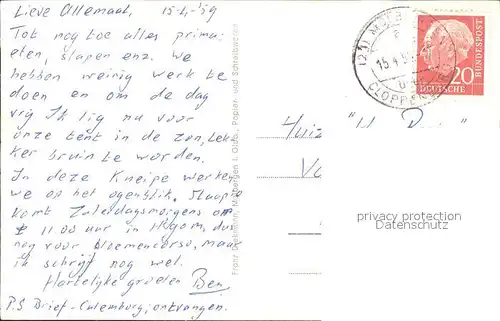 Lieve Allemaal, 15-4-'59
Tot nog toe alles prima
eten, slapen enz. We
hebben weinig werk te
doen en om de dag
vrij Ik lig nu voor
onze tent in de zon, lek-
ker bruin te worden.
In deze Kneipe werken
we op het ogenblik.
komt Zaterdagsmorgens om
± 11.00 uur in
nog voor bloemencorso, maar
ik schrijf nog wel.
Hartelijke groeten Ben
P.S Brief-Culemborg, ontvangen.
Franz Dieckmann, Molbergen i. Oldb., Papier- und Schreibwaren
(23)
15.4.59
CLOPPENBURG
20
DEUTSCHE
BUNDESPOST
privacy protection
Datenschutz